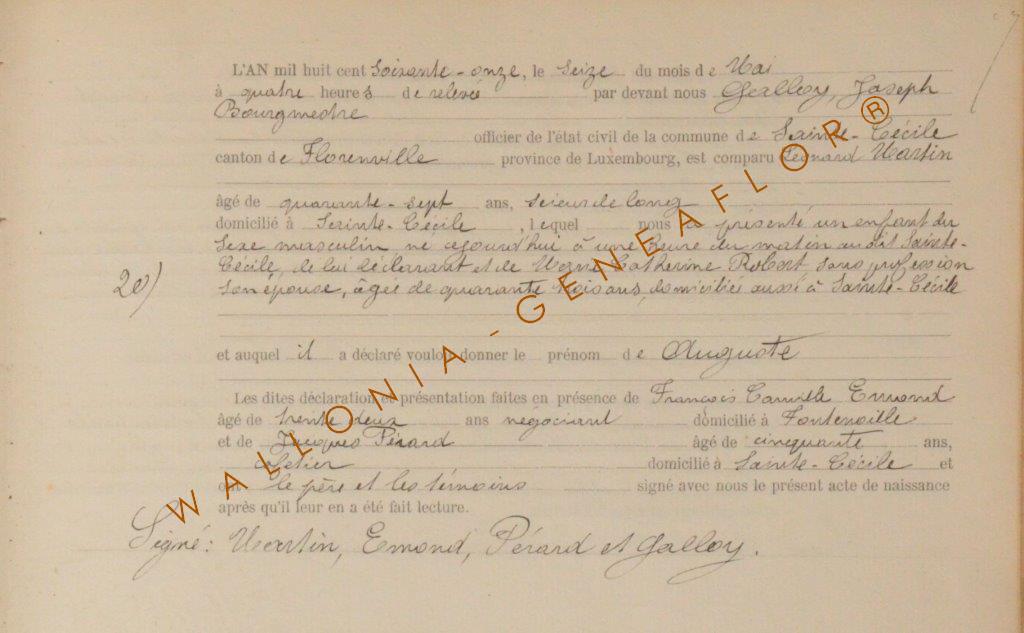 L'AN mil huit cent Soixante-onze, le Seize du mois de Mai
à quatre heures de relevée par devant nous Galloy, Joseph
Bourgmestre
officier de l'état civil de la commune de Sainte-Cécile
canton de Florenville province de Luxembourg, est comparu Léonard Martin
âgé de quarante-sept ans, scieur de long
domicilié à Sainte-Cécile, lequel nous a présenté un enfant du
Sexe masculin né cejourd'hui à une heure du matin audit Sainte-
Cécile, de lui déclarant et de Marie Catherine Robert, sans profession
20)
son épouse, âgée de quarante trois ans, domiciliée aussi à Sainte-Cécile
et auquel il a déclaré vouloir donner le prénom de Auguste
Les dites déclaration et présentation faites en présence de François Camille Emond
âgé de trente deux ans négociant domicilié à Fontenoille
et de Jacques Pérard âgé de cinquante ans,
cafetier domicilié à Sainte-Cécile et
ont le père et les témoins signé avec nous le présent acte de naissance
après qu'il leur en a été fait lecture.
Signé: Martin, Emond, Pérard et Galloy.
WALLONIA-GENEAFLOR®